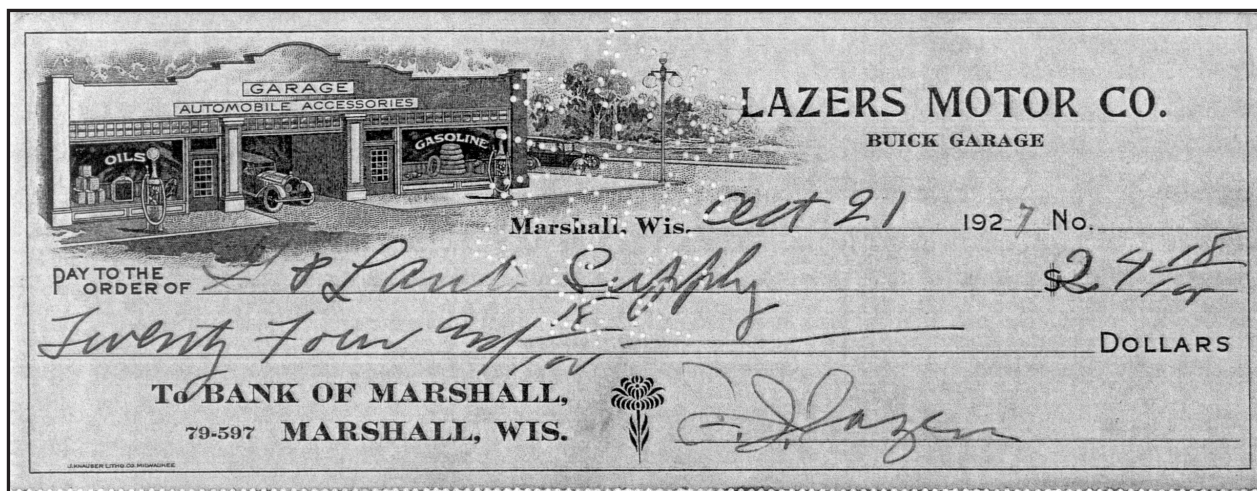 GARAGE
AUTOMOBILE ACCESSORIES
OILS
GASOLINE
LAZERS MOTOR CO.
BUICK GARAGE
Marshall, Wis. Oct 21 1927 No.
PAY TO THE
ORDER OF Supply $24 18/100
Twenty Four and 18/100 DOLLARS
To BANK OF MARSHALL,
79-597 MARSHALL, WIS.
Lazers
J. KNAUBER LITHO. CO. MILWAUKEE